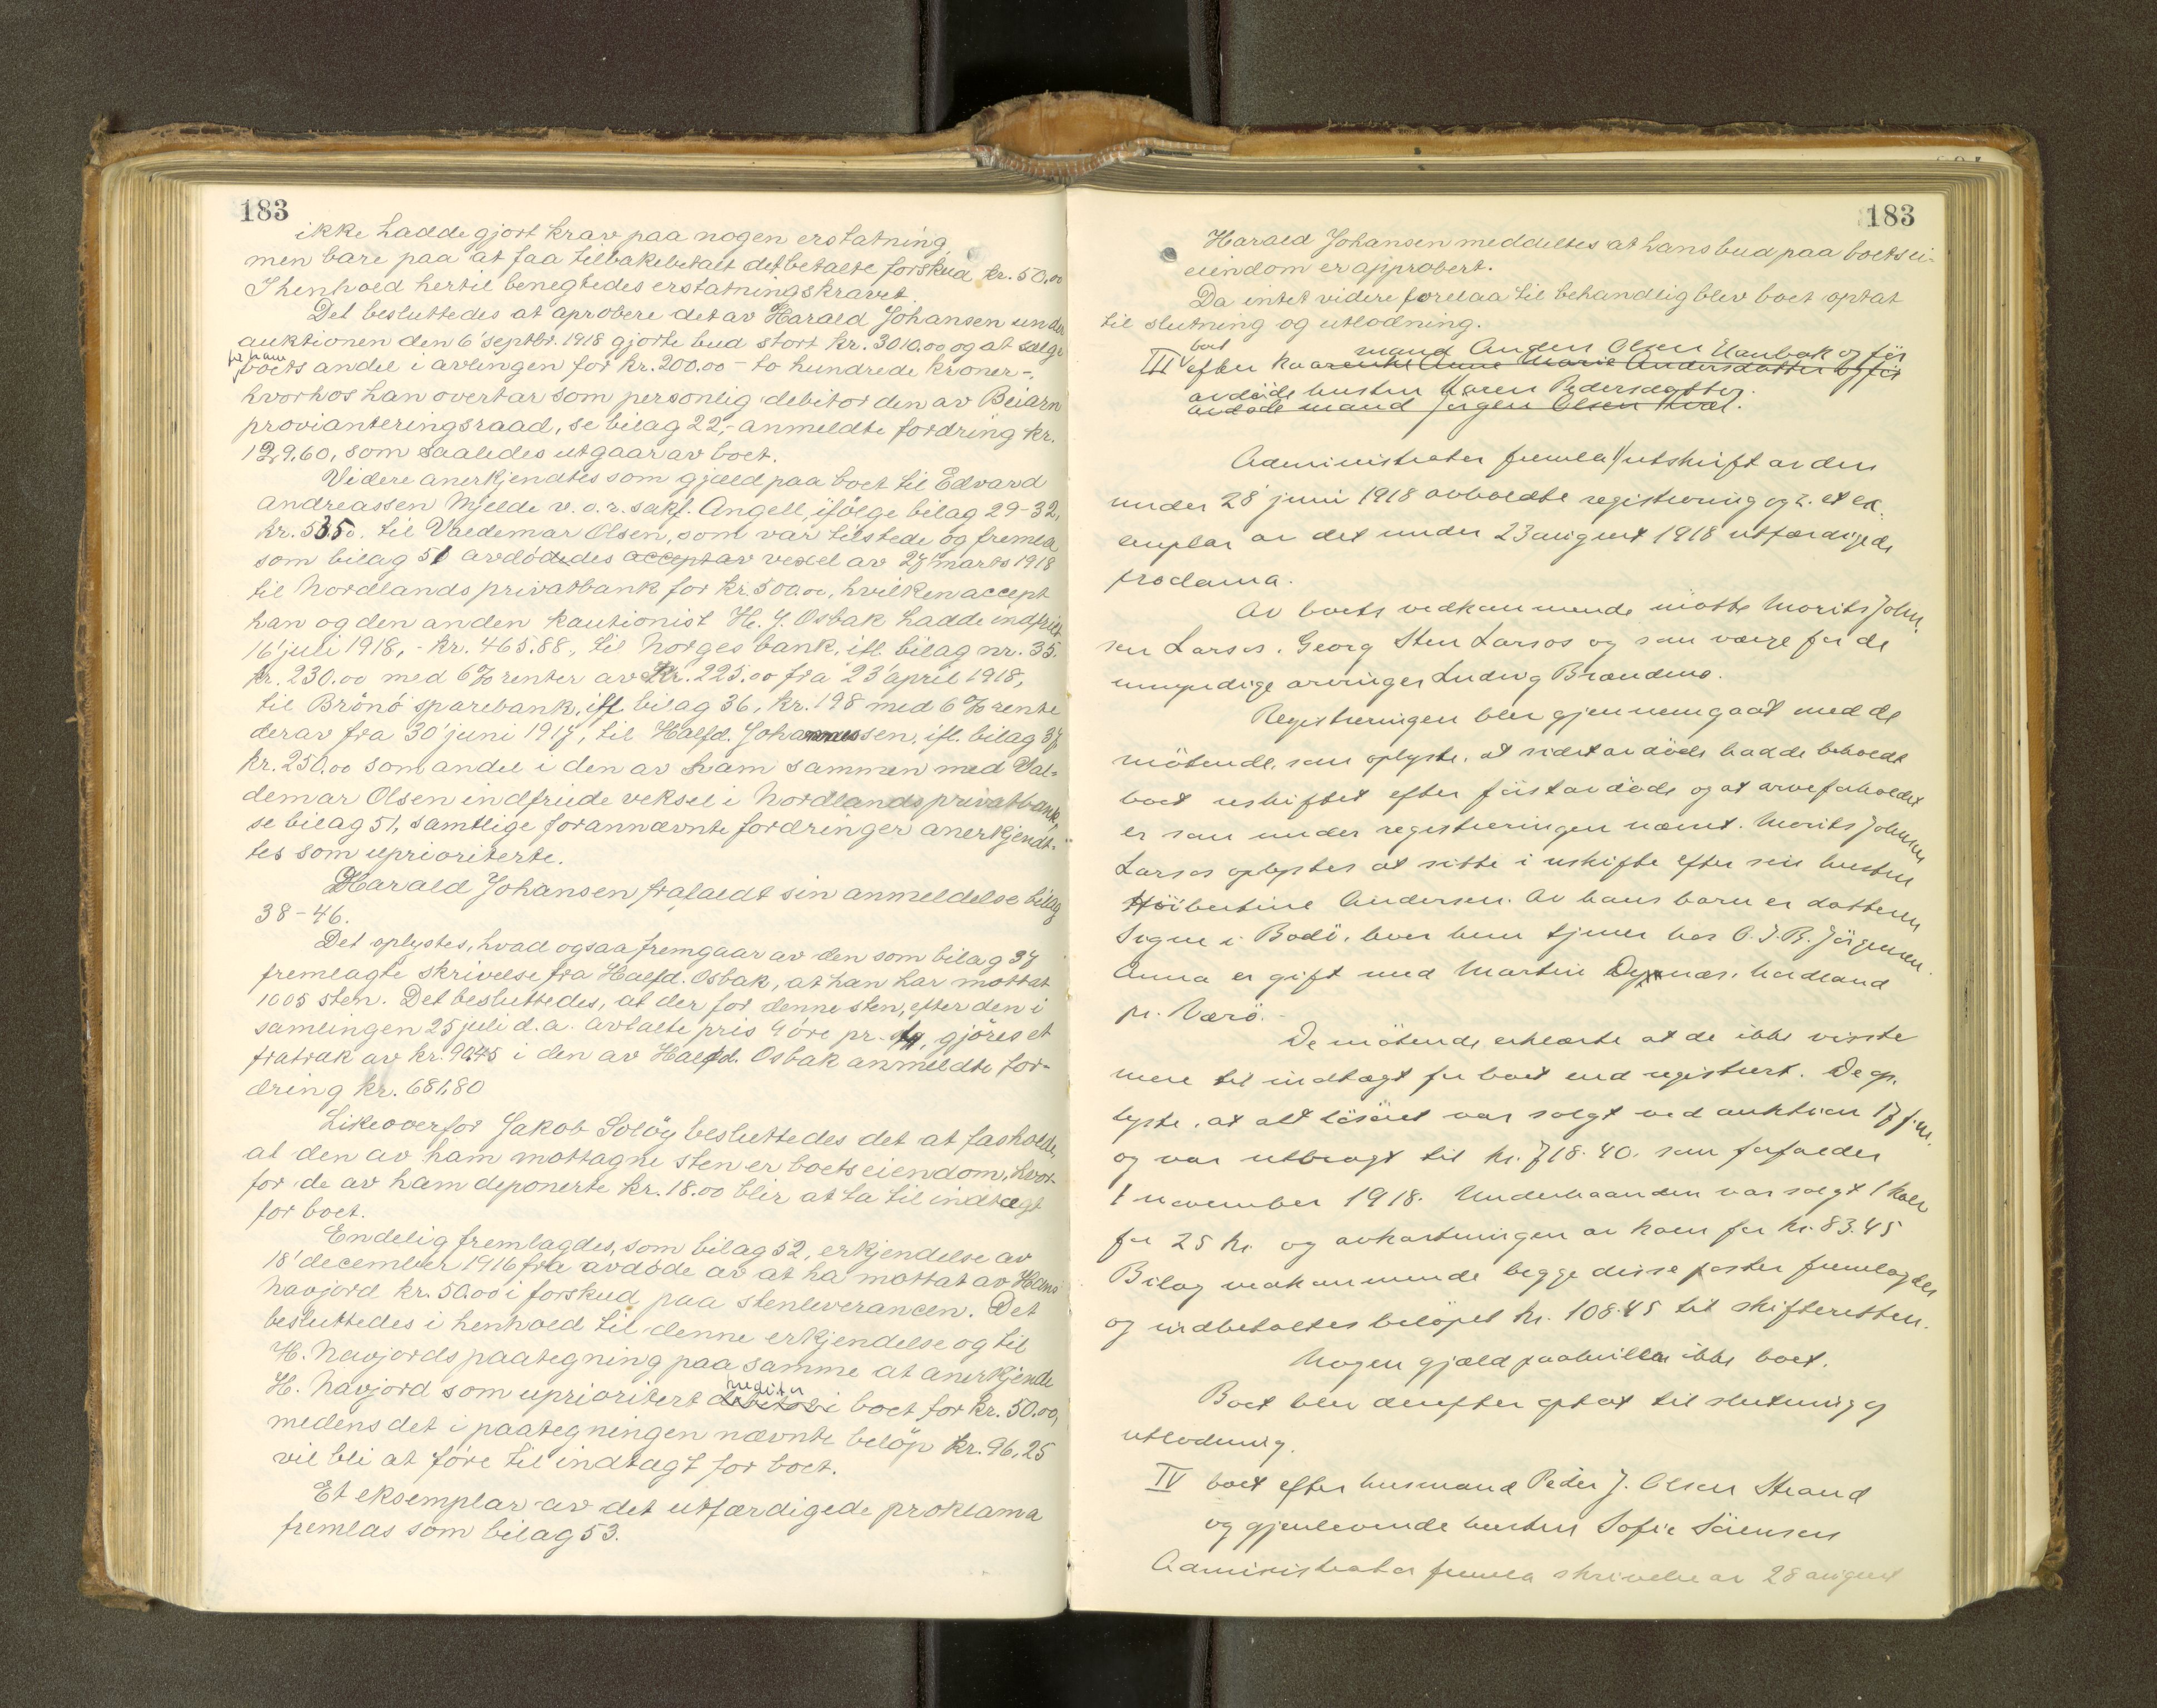 183
ikke hadde gjort krav paa nogen erstatning,
men bare paa at faa tilbakebetalt det betalte forskud kr. 50,00
I henhold hertil benegtedes erstatningskravet.
Det besluttedes at aprobere det av Harald Johansen under
auktionen den 6' septbr. 1918 gjorte bud stort kr. 3010.00 og at sælge
til ham
boets andel i avlingen for kr. 200.00 - to hundrede kroner -,
hvorhos han overtar som personlig debitor den av Beiarn
provianteringsraad, se bilag 22,- anmeldte fordring kr.
129.60, som saaledes utgaar av boet.
Videre anerkjendtes som gjæld paa boet til Edvard
Andreassen Mjelde v. o. r. sakf. Angell, ifölge bilag 29-32,
kr. 535.0. til Valdemar Olsen, som var tilstede og fremla
som bilag 51 avdödedes accept av veksel av 27' marts 1918
til Nordlands privatbank for kr. 500.00, hvilken accept
han og den anden kautionist H. J. Osbak hadde indfriet
16' juli 1918, - kr. 465.88, til Norges bank, ifl. bilag nr. 35.
kr. 230.00 med 6% renter av kr. 225.00 fra 23' april 1918,
til Brönö sparebank, ifl. bilag 36, kr. 198 med 6% rente
derav fra 30' juni 1917, til Halfd. Johannessen, ifl. bilag 37
kr. 250.00 som andel i den av ham sammen med Val-
demar Olsen indfriede veksel i Nordlands privatbank,
se bilag 51, samtlige forannævnte fordringer anerkjendt-
tes som uprioriterte.
Harald Johansen frafaldt sin anmeldelse bilag
38-46.
Det oplystes, hvad ogsaa fremgaar av den som bilag 37
fremlagte skrivelse fra Halfd. Osbak, at han har mottat
1005 sten. Det besluttedes, at der for denne sten, efter den i
samlingen 25 juli d.a. avtalte pris 9 öre pr. kg, gjöres et
fratrak av kr. 90.45 i den av Halfd. Osbak anmeldte for-
dring kr. 681,80
Likeoverfor Jakob Solöy besluttedes det at fastholde,
at den av ham mottagne sten er boets eiendom, hvor-
for de av ham deponerte kr. 18.00 blir at ta til indtægt
for boet.
Endelig fremlagdes, som bilag 52, erkjendelse av
18' december 1916 fra avdöde av at ha mottat av Hans
Navjord kr. 50.00 i forskud paa stenleverancen. Det
besluttedes i henhold til denne erkjendelse og til
H. Navjords paategning paa samme at anerkjende
kreditor
H. Navjord som uprioritert debitor i boet for kr. 50.00,
medens det i paategningen nævnte belöp kr. 96,25
vil bli at före til indtægt for boet.
Et eksemplar av det utfærdigede proklama
fremlas som bilag 53.
183
Harald Johansen meddeltes at hans bud paa boets ei-
eiendom er approbert.
Da intet videre forelaa til behandlig blev boet optat
til slutning og utlodning.
boet mand Anders Olsen og för
III efter kaarenke Anne Marie Andersdatter og för
avdöde hustru Karen Pedersdatter.
avdöde mand Jörgen Olsen
Administrator fremla 1/ utskrift av den
under 28' juni 1918 avholdte registrering og 2. et ek-
emplar av det under 23 august 1918 utfærdigede
proclama.
Av boets vedkommende mötte Morits John-
sen Larsos. Georg Sten Larsos og som værge for de
umyndige arvinger Ludvig Brændmo.
Registreringen blev gjennemgaat med de
mötende, som oplyste, at sidstavdöde hadde beholdt
boet uskiftet efter förstavdöde og at arveforholdet
er som under registreringen nævnt. Morits Johnsen
Larsos oplystes at sitte i uskifte efter sin hustru
Höibertine Andersen. Av hans barn er datteren
Signe i Bodö, hvor hun tjener hos O. J. B. Jörgensen.
Anna er gift med Martin Dypnæs, Nordland
pr. Værö.
De mötende erklærte at de ikke visste
mere til indtægt for boet end registrert. De op-
lyste, at alt lösöret var solgt ved auktion 17 f.m.
og var utbragt til kr. 718.40, som forfalder
1 november 1918. Underhaanden var solgt 1 kalv
for 25 kr. og avkastningen av koen for kr. 83.45
Bilag vedkommende begge disse poster fremlagdes
og indbetaltes belöpet kr. 108.45 til skifteretten.
Nogen gjæld paahviller ikke boet.
Boet blev derefter optat til slutning og
utlodning.
IV boet efter husmand Peder J. Olsen Strand
og gjenlevende hustru Sofie Sörensen
Administrator fremla skrivelse av 28 august